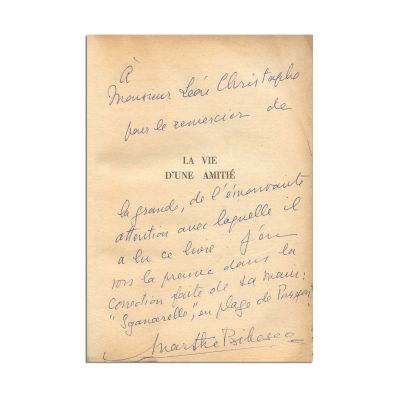 À
Monsieur Léon Christophe
pour le remercier de
LA VIE
D'UNE AMITIÉ
la grande, de l'émouvante
attention avec laquelle il
a lu ce livre. J'en
vois la preuve dans la
correction faite de sa main:
"Sganarelle", en place de
Marthe Bibesco